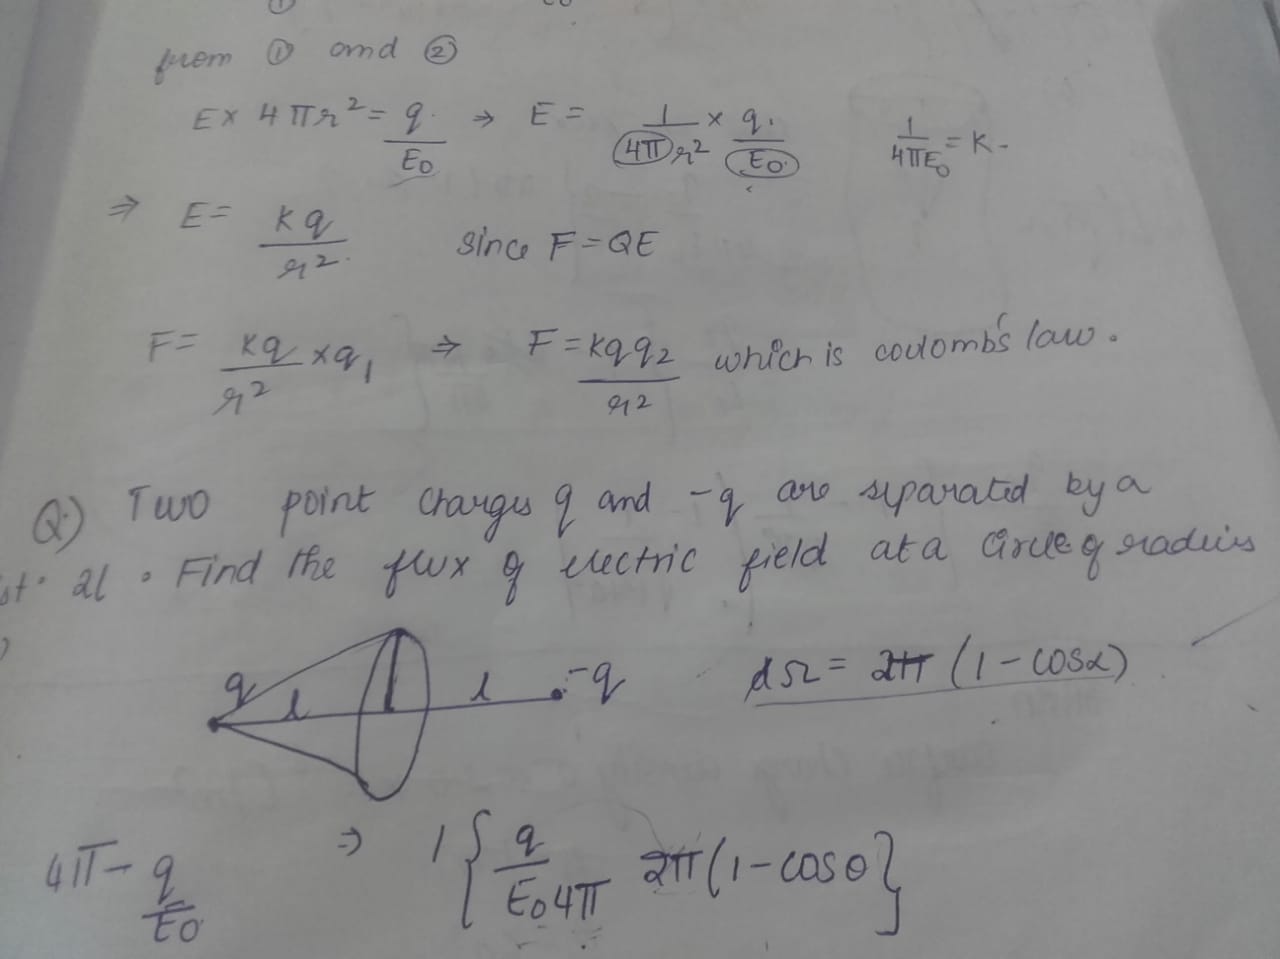 from ① and ②
E × 4πr² = q/E₀ ⇒ E = 1/4πr² × q/E₀ 1/4πE₀ = K.
⇒ E = kq/r² since F = QE
F = kq/r² × q₁ ⇒ F = kqq₂/r² which is coulomb's law.
Q.) Two point charges q and -q are separated by a
st. 2l. Find the flux of electric field at a circle of radius
q l l -q dΩ = 2π (1 - cosα)
4π - q/E₀ ⇒ 1{q/E₀4π 2π(1 - cosθ}